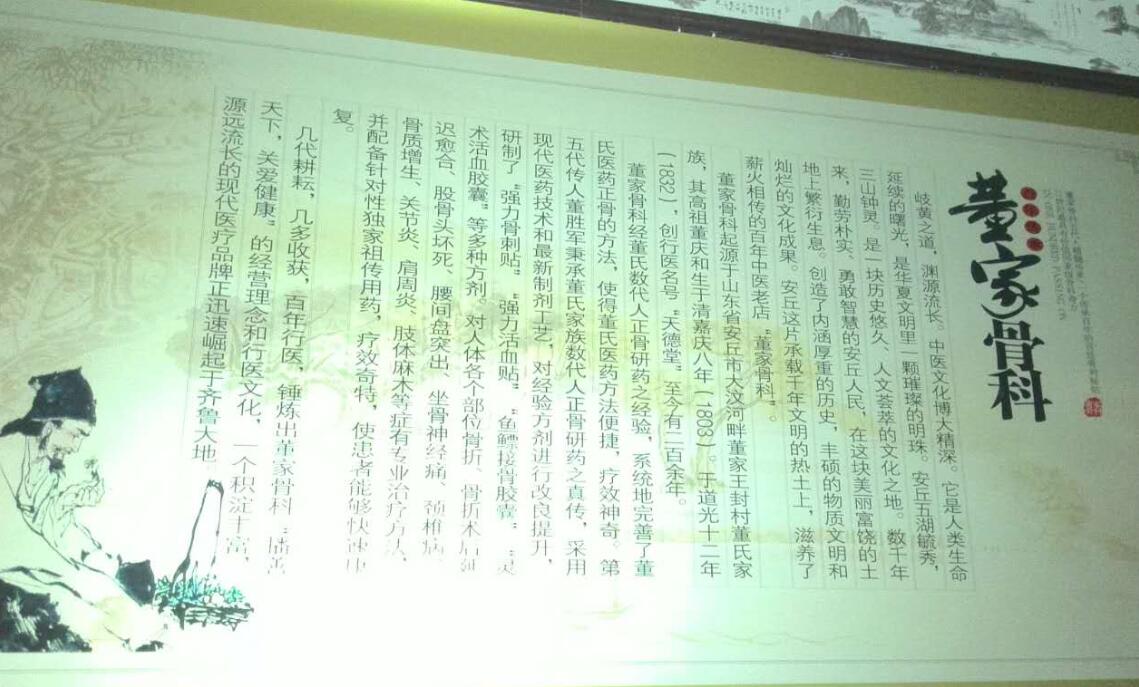 董家骨科
岐黄之道，渊源流长。中医文化博大精深。它是人类生命
延续的曙光，是华夏文明里一颗璀璨的明珠。安丘五湖毓秀，
三山钟灵。是一块历史悠久、人文荟萃的文化之地。数千年
来，勤劳朴实、勇敢智慧的安丘人民，在这块美丽富饶的土
地上繁衍生息。创造了内涵厚重的历史，丰硕的物质文明和
灿烂的文化成果。安丘这片承载千年文明的热土上，滋养了
薪火相传的百年中医老店“董家骨科”。
董家骨科起源于山东省安丘市大汶河畔董家王封村董氏家
族，其高祖董庆和生于清嘉庆八年（1803）。于道光十二年
（1832），创行医名号“天德堂”至今有二百余年。
董家骨科经董氏数代人正骨研药之经验，系统地完善了董
氏医药正骨的方法，使得董氏医药方法便捷，疗效神奇。第
五代传人董胜军秉承董氏家族数代人正骨研药之真传，采用
现代医药技术和最新制剂工艺，对经验方剂进行改良提升，
研制了“强力骨刺贴”“强力活血贴”“鱼鳔接骨胶囊”“灵
术活血胶囊”等多种方剂。对人体各个部位骨折、骨折术后延
迟愈合、股骨头坏死、腰间盘突出、坐骨神经痛、颈椎病、
骨质增生、关节炎、肩周炎、肢体麻木等症有专业治疗方法，
并配备针对性独家祖传用药，疗效奇特，使患者能够快速康
复。
几代耕耘，几多收获，百年行医，锤炼出董家骨科“播善
天下，关爱健康”的经营理念和行医文化，一个积淀丰富，
源远流长的现代医疗品牌正迅速崛起于齐鲁大地。